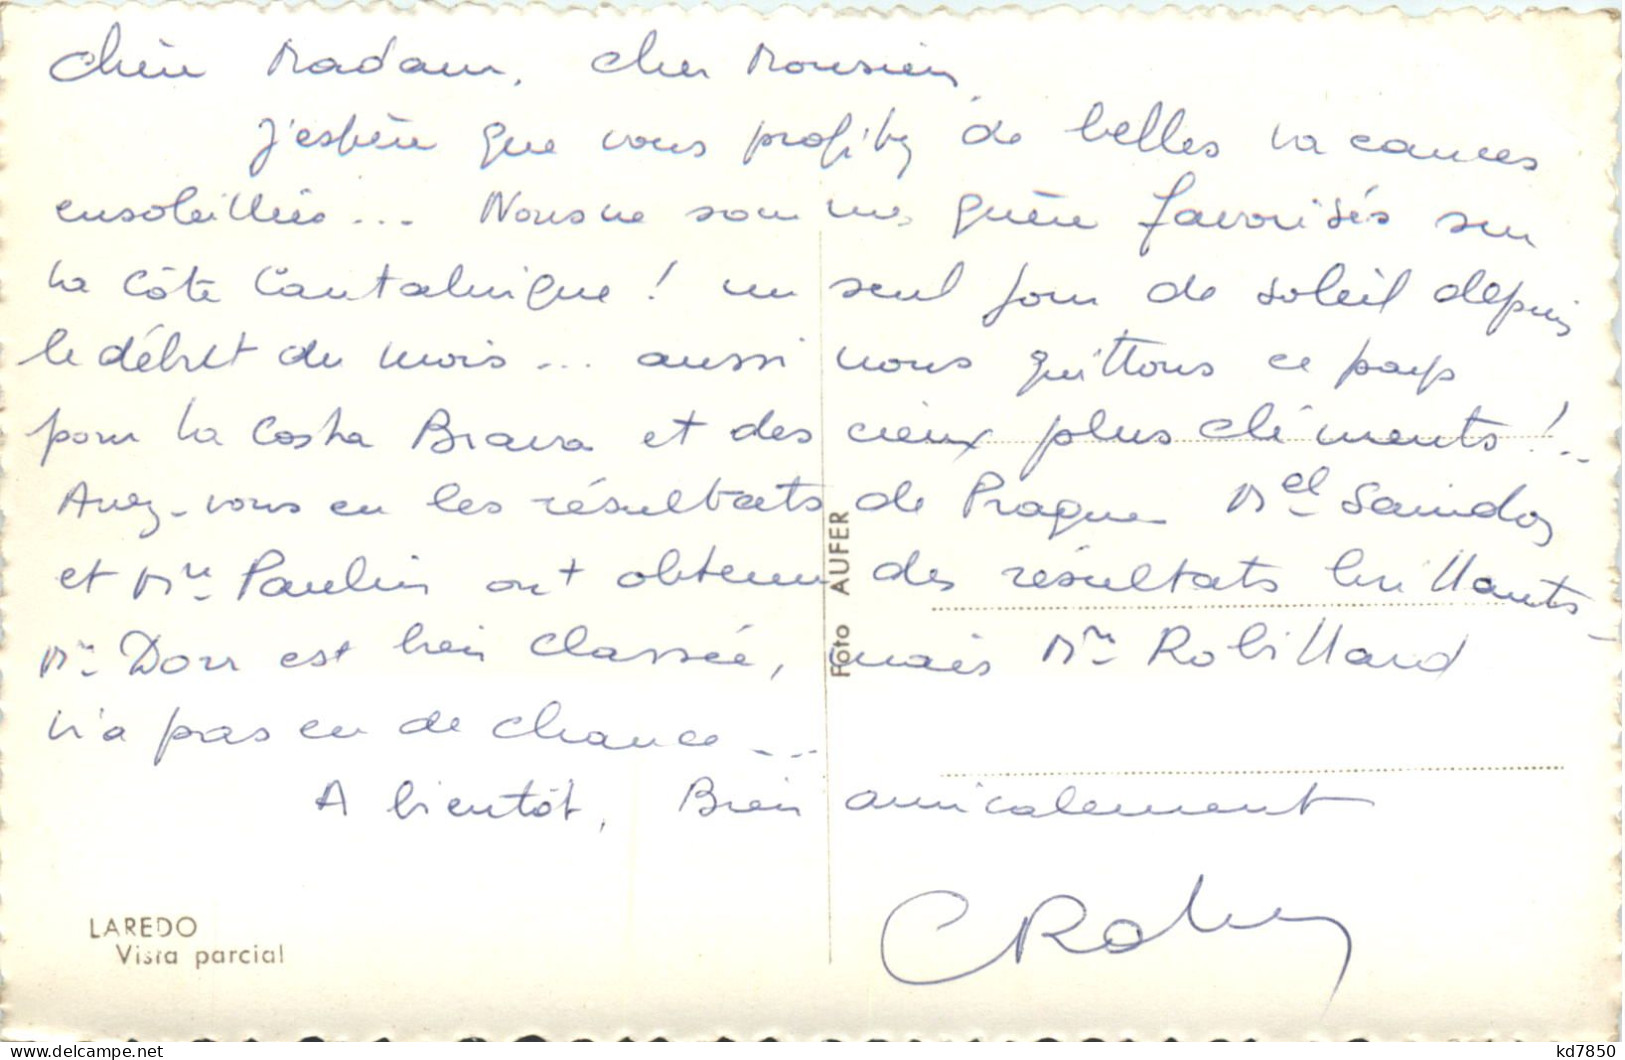 Chère Madame, Cher Monsieur,
J'espère que vous profitez de belles vacances
ensoleillées... Nous ne sommes guère favorisés sur
la Côte Cantabrique ! un seul jour de soleil depuis
le début du mois... aussi nous quittons ce pays
pour la Costa Brava et des cieux plus cléments !..
Avez-vous eu les résultats de Prague Mel
et Me Paulin ont obtenu des résultats brillants_
Me Dorr est bien classée, mais Me Robillard
n'a pas eu de chance_..
A bientôt, Bien amicalement
Foto AUFER
LAREDO
Vista parcial
kd7850